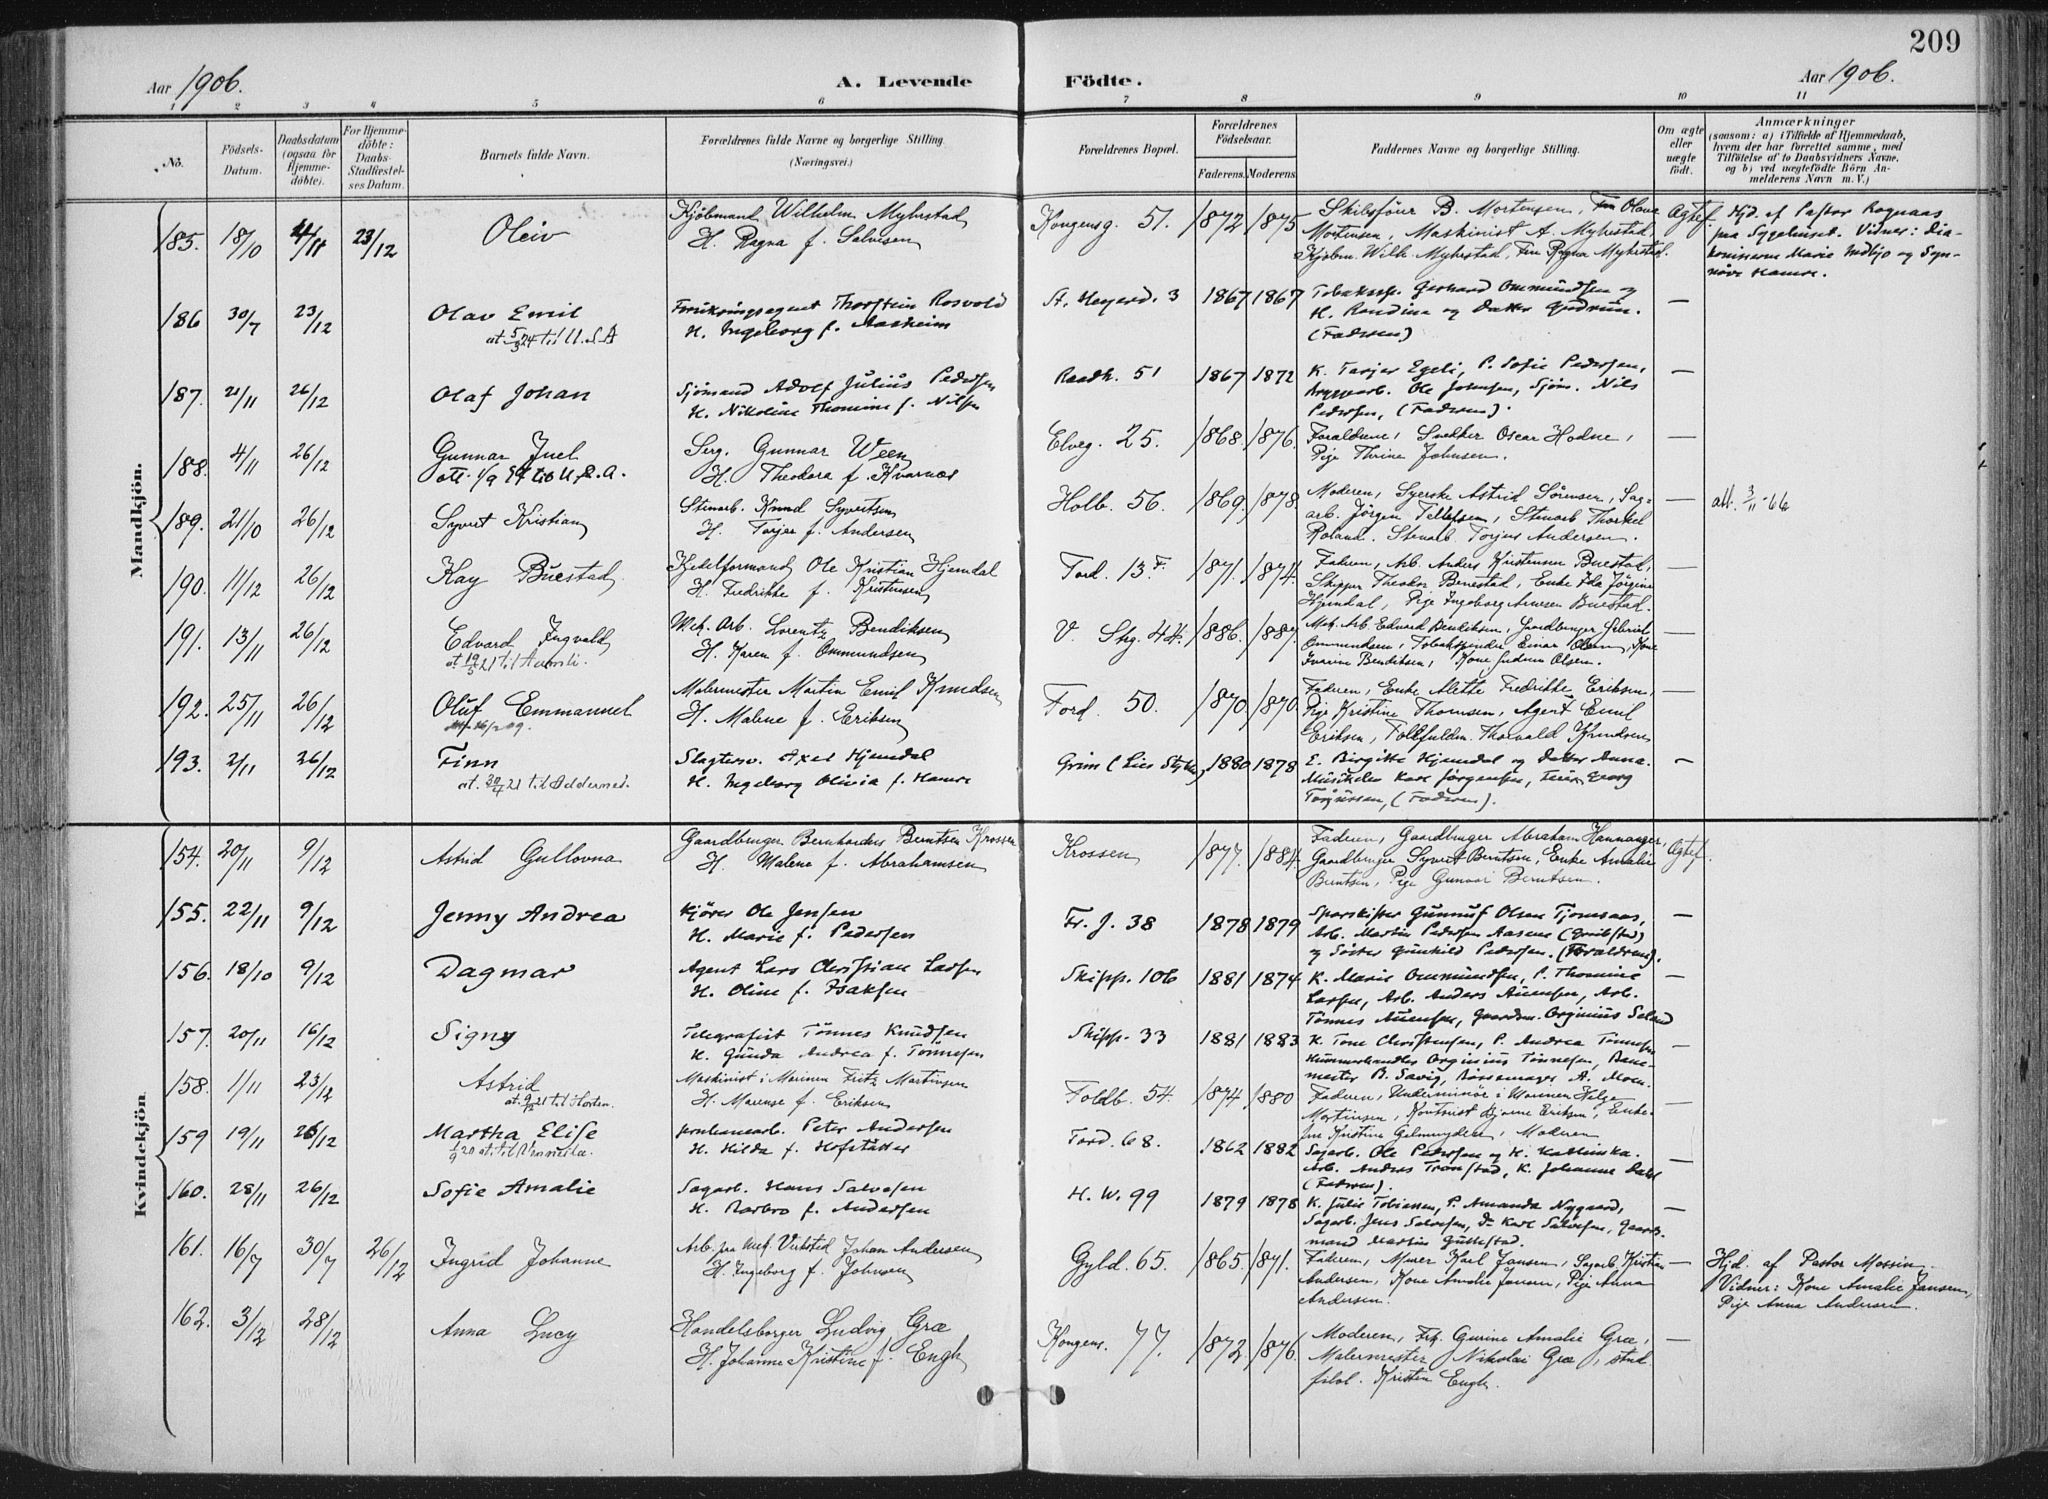 209
Aar 1906. A. Levende Födte. Aar 1906.
1 2 3 4 5 6 7 8 9 10 11
No. Födsels-Datum. Daabsdatum (ogsaa for Hjemme-döbte). For Hjemme-döbte: Daabs-Stadfæstel-ses Datum. Barnets fulde Navn. Forældrenes fulde Navne og borgerlige Stilling. (Næringsvei.) Forældrenes Bopæl. Forældrenes Födselsaar. Faderens. Moderens. Faddernes Navne og borgerlige Stilling. Om ægte eller uægte födt. Anmærkninger (saasom: a) i Tilfælde af Hjemmedaab, hvem der har forrettet samme, med Tilföielse af to Daabsvidners Navne, og b) ved uægtefödte Börn An-melderens Navn m. V.)
Mandkjön.
185. 18/10 4/11 23/12 Oleiv Kjöbmand Wilhelm Myhrstad
H. Ragna f. Salvesen
Kongensg. 51. 1872 1875 Skibsförer B. Mortensen, Fru Olava
Mortensen, Maskinist A. Myhrstad,
Kjöbm. Wilh. Myhrstad, Fru Ragna Myhrstad.
Ægtef. Hjd. af Pastor Rognaas
paa Sygehuset. Vidner: Dia-
konisserne Marie Midbjo og Syn-
növe Hamre.
186 30/7 23/12 Olav Emil
at. 5/3 24 til U.S.A
Forsikringsagent Thorstein Rosvold
H. Ingeborg f. Aasheim
St. Hegerd. 3 1867 1867 Tobakssp. Gerhard Ommundsen og
H. Randine og Datter Gudrun.
(Faderen)
—
187. 21/11 26/12 Olaf Johan Sjömand Adolf Julius Pedersen
H. Nikoline Thomine f. Nilsen
Raadh. 51 1867 1872 K. Tarjer Egeli, P. Sofie Pedersen,
Bryggearb. Ole Johnsen, Sjöm. Nils
Pedersen, (Faderen).
—
188. 4/11 26/12 Gunnar Juel
Serg. Gunnar Ween
H. Theodora f. Kvarnæs
Elveg. 25. 1868. 1876. Forældrene, Snekker Oscar Hodne,
Pige Thrine Johnsen.
—
189. 21/10 26/12 Syvert Kristian Stenarb. Knud Syvertsen
H. Torjer f. Andersen
Holb. 56. 1869. 1878. Moderen, Syerske Astrid Sörensen, Sag-
arb. Jörgen Tellefsen, Stenarb Thorkel
Roland. Stenarb. Torjus Andersen.
— att. 3/11-66
190. 11/12 26/12 Kay Buestad Kjedelformand Ole Kristian Hjemdal
H. Fredrikke f. Kristensen
Tord. 13 F. 1871. 1874. Faderen, Arb. Anders Kristensen Buestad,
Skipper Theodor Benestad, Enke Ida Jörgine
Hjemdal, Pige Ingeborg Buestad.
—
191. 13/11 26/12 Edvard Ingvald
Mek. Arb. Lorentz Bendiksen
H. Karen f. Ommundsen
V. Stg. 44. 1886. 1887. Mek. Arb. Edvard Bendiksen, Gaardbruger Gabriel
Ommundsen, Tobakspinder Einar Olsen, Kone
Ivarine Bendiksen, Kone Gudrun Olsen.
—
192. 25/11 26/12 Oluf Emmanuel
Malermester Martin Emil Knudsen
H. Malene f. Eriksen
Tord. 50. 1870. 1870. Faderen, Enke Alette Fredrikke Eriksen,
Pige Kristine Thomsen, Agent Emil
Eriksen, Toldfuldm. Thorvald Knudsen
—
193. 2/11 26/12 Finn
at. 30/4 21 til Oddernes.
Slagtersv. Axel Hjemdal
H. Ingeborg Olivia f. Hamre
Grim 1880 1878 E. Birgitte Hjemdal og Datter Anna.
Musikelev Karl Jörgensen, Georg
(Faderen).
—
Kvindekjön
154. 20/11 9/12 Astrid Gullovna Gaardbruger Bernhardus Berntsen Krossen
H. Malene f. Abrahamsen
Krossen 1877. 1884. Faderen, Gaardbruger Abraham Hannanger,
Gaardbruger Syvert Berntsen, Enke Amalie
Berntsen, Pige Gunvor Berntsen.
Ægtef.
155. 22/11 9/12 Jenny Andrea Kjörer Ole Jensen
H. Marie f. Pedersen
Fr. J. 38 1878 1879 Gunnuf Olsen Tjomsaas,
Arb. Martin Pedersen Aasene
og Söster Gunhild Pedersen. (Forældrene).
—
156. 18/10 9/12 Dagmar Agent Lars Christian Larsen
H. Oline f. Isaksen
Skipp. 106 1881 1874 K. Marie Ommundsen, P. Thomine
Larsen, Arb. Anders Auensen, Arb.
Tönnes Auensen, Gaardm. Orginius Seland
—
157. 20/11 16/12 Signy Telegrafist Tönnes Knudsen
H. Gunda Andrea f. Tönnesen
Skipp. 33 1881 1883 K. Tone Christensen, P. Andrea Tönnesen
Hummerhandler Orginius Tönnesen, Bane-
mester B. Savig, Bössemager A. Moen.
—
158. 1/11 23/12 Astrid
at. 9/2 21 til Horten.
Maskinist i Marinen Fritz Martinsen
H. Marense f. Eriksen
Holb. 54. 1874 1880 Faderen, Underminör i Marinen Helge
Martinsen, Kontorist Bjarne Eriksen, Enke-
fru Kristine Gilmundsen, Moderen
—
159 19/11 26/12 Martha Elise
1/9 20 at. til Vennesla.
Jernbanearb. Peter Andersen
H. Hilda f. Hofstätter
Tord. 68. 1862 1882 Sagarb. Ole Pedersen og H. Kathinka.
Arb. Anders Tronstad, K. Johanne Dahl
(Faderen).
—
160. 28/11 26/12 Sofie Amalie Sagarb. Hans Salvesen
H. Barbro f. Andersen
H. W. 99 1879 1878 K. Julie Tobiassen, P. Amanda Nygaard,
Sagarb. Jens Salvesen, do. Karl Salvesen, Gaard-
mand Martin Gullestad.
—
161. 16/7 30/7 26/12 Ingrid Johanne Arb. paa Mek. Verksted Johan Andersen
H. Ingeborg f. Johnsen
Gyld. 65. 1865. 1871. Faderen, Murer Karl Jansen, Sagarb. Kristian
Andersen, Kone Amalie Jansen, Pige Anna
Andersen.
— Hjd. af Pastor Mossin.
Vidner: Kone Amalie Jansen,
Pige Anna Andersen.
162. 3/12 28/12 Anna Lucy Handelsborger Ludvig Græ
H. Johanne Kristine f. Engh
Kongens. 77. 1872 1876. Moderen, Frk. Gurine Amalie Græ,
Malermester Nikolai Græ, stud.
filol. Kristen Engh.
—